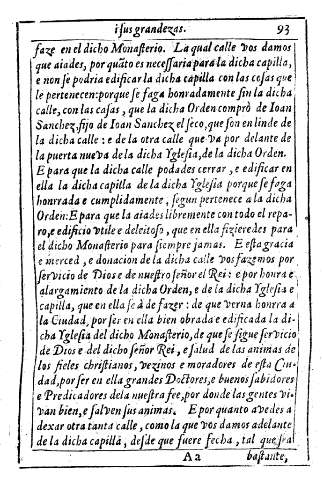 i sus grandezas. 93
faze en el dicho Monasterio. La qual calle vos damos
que aiades, por quãto es necessaria para la dicha capilla,
e non se podria edificar la dicha capilla con las cosas que
le pertenecen: porque se faga honradamente sin la dicha
calle, con las casas, que la dicha Orden comprò de Ioan
Sanchez, fijo de Ioan Sanchez el seco, que son en linde de
la dicha calle: e de la otra calle que va por delante de
la puerta nueva de la dicha Yglesia, de la dicha Orden.
E para que la dicha calle podades cerrar, e edificar en
ella la dicha capilla de la dicha Yglesia porque se faga
honrrada e cumplidamente, segun pertenece a la dicha
Orden: E para que la aiades libremente con todo el repa-
ro, e edificio vtile e deleitoso, que en ella fizieredes para
el dicho Monasterio para siempre jamas. E esta gracia
e merced, e donacion de la dicha calle vos fazemos por
servicio de Dios e de nuestro señor el Rei: e por honra e
alargamiento de la dicha Orden, e de la dicha Yglesia e
capilla, que en ella se à de fazer: de que verna honrra a
la Ciudad, por ser en ella bien obrada e edificada la di-
cha Yglesia del dicho Monasterio, de que se sigue servicio
de Dios e del dicho señor Rei, e salud de las animas de
los fieles christianos, vezinos e moradores de esta Ciu-
dad, por ser en ella grandes Doctores, e buenos sabidores
e Predicadores de la nuestra fee, por donde las gentes vi-
van bien, e salven sus animas. E por quanto avedes a
dexar otra tanta calle, como la que vos damos adelante
de la dicha capilla, desde que fuere fecha, tal que sea
A a bastante,